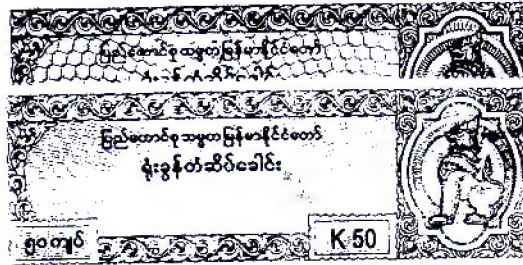 ပြည်ထောင်စုသမ္မတမြန်မာနိုင်ငံတော်
ရုံးခွန်တံဆိပ်ခေါင်း
ပြည်ထောင်စုသမ္မတမြန်မာနိုင်ငံတော်
ရုံးခွန်တံဆိပ်ခေါင်း
၅၀ ကျပ်
K 50